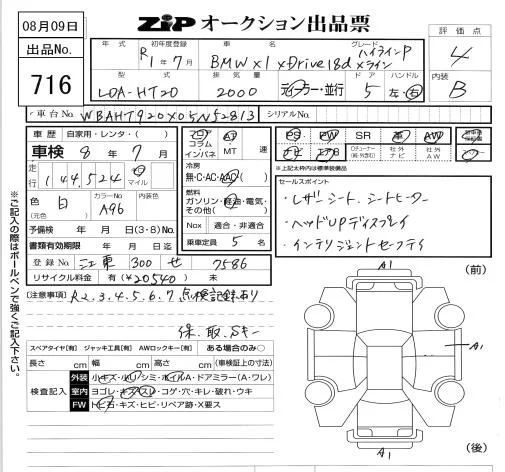 08月09日
出品No.
716
ZIPオークション出品票
評価点
4
内装
B
年式 初年度登録 車名 グレード
R1年7月 BMW X1 xDrive18d ハイラインP xライン
型式 排気量 ドア ハンドル
LDA-HT20 2000 ディーラー・並行 5 左・右
車台No. WBAHT920X05N52813 シリアルNo.
車歴 自家用・レンタ・( )
車検 8年7月
走行 144,524 km マイル
色 白 (元色) カラーNo. A96
予備検 年 月 日(3・8)No.
書類有効期限 年 月 日迄
登録No. 江東 300 せ 7586
リサイクル料金 有(¥20540) 未
フロア コラム インパネ
AT MT 速
冷房
無・C・AC・AAC
燃料
ガソリン・軽油・電気・その他( )
Nox 適合・非適合
乗車定員 5 名
PS PW SR 革 AW
ナビ エアB Dチューナー(純・外含む) 社外ナビ 社外AW
※上記太枠内は標準装備品
セールスポイント
・レザーシート、シートヒーター
・ヘッドUPディスプレイ
・インテリジェントセーフティ
[注意事項] R2.3.4.5.6.7 点検記録有り
保.取.Sキー
スペアタイヤ[有] ジャッキ工具[有] AWロックキー[有] ある場合のみ○
長さ cm 幅 cm 高さ cm (車検証上の寸法)
検査記入
外装 小キズ・小凹・シミ・ホイルA・ドアミラー(A・ワレ)
室内 ヨゴレ・キズ・スレ・コゲ・穴・キレ・破れ・ウキ
FW トビ石・キズ・ヒビ・リペア跡・X要ス
※ご記入の際はボールペンで強くご記入下さい。
A1
(前)
A1
A1
(後)